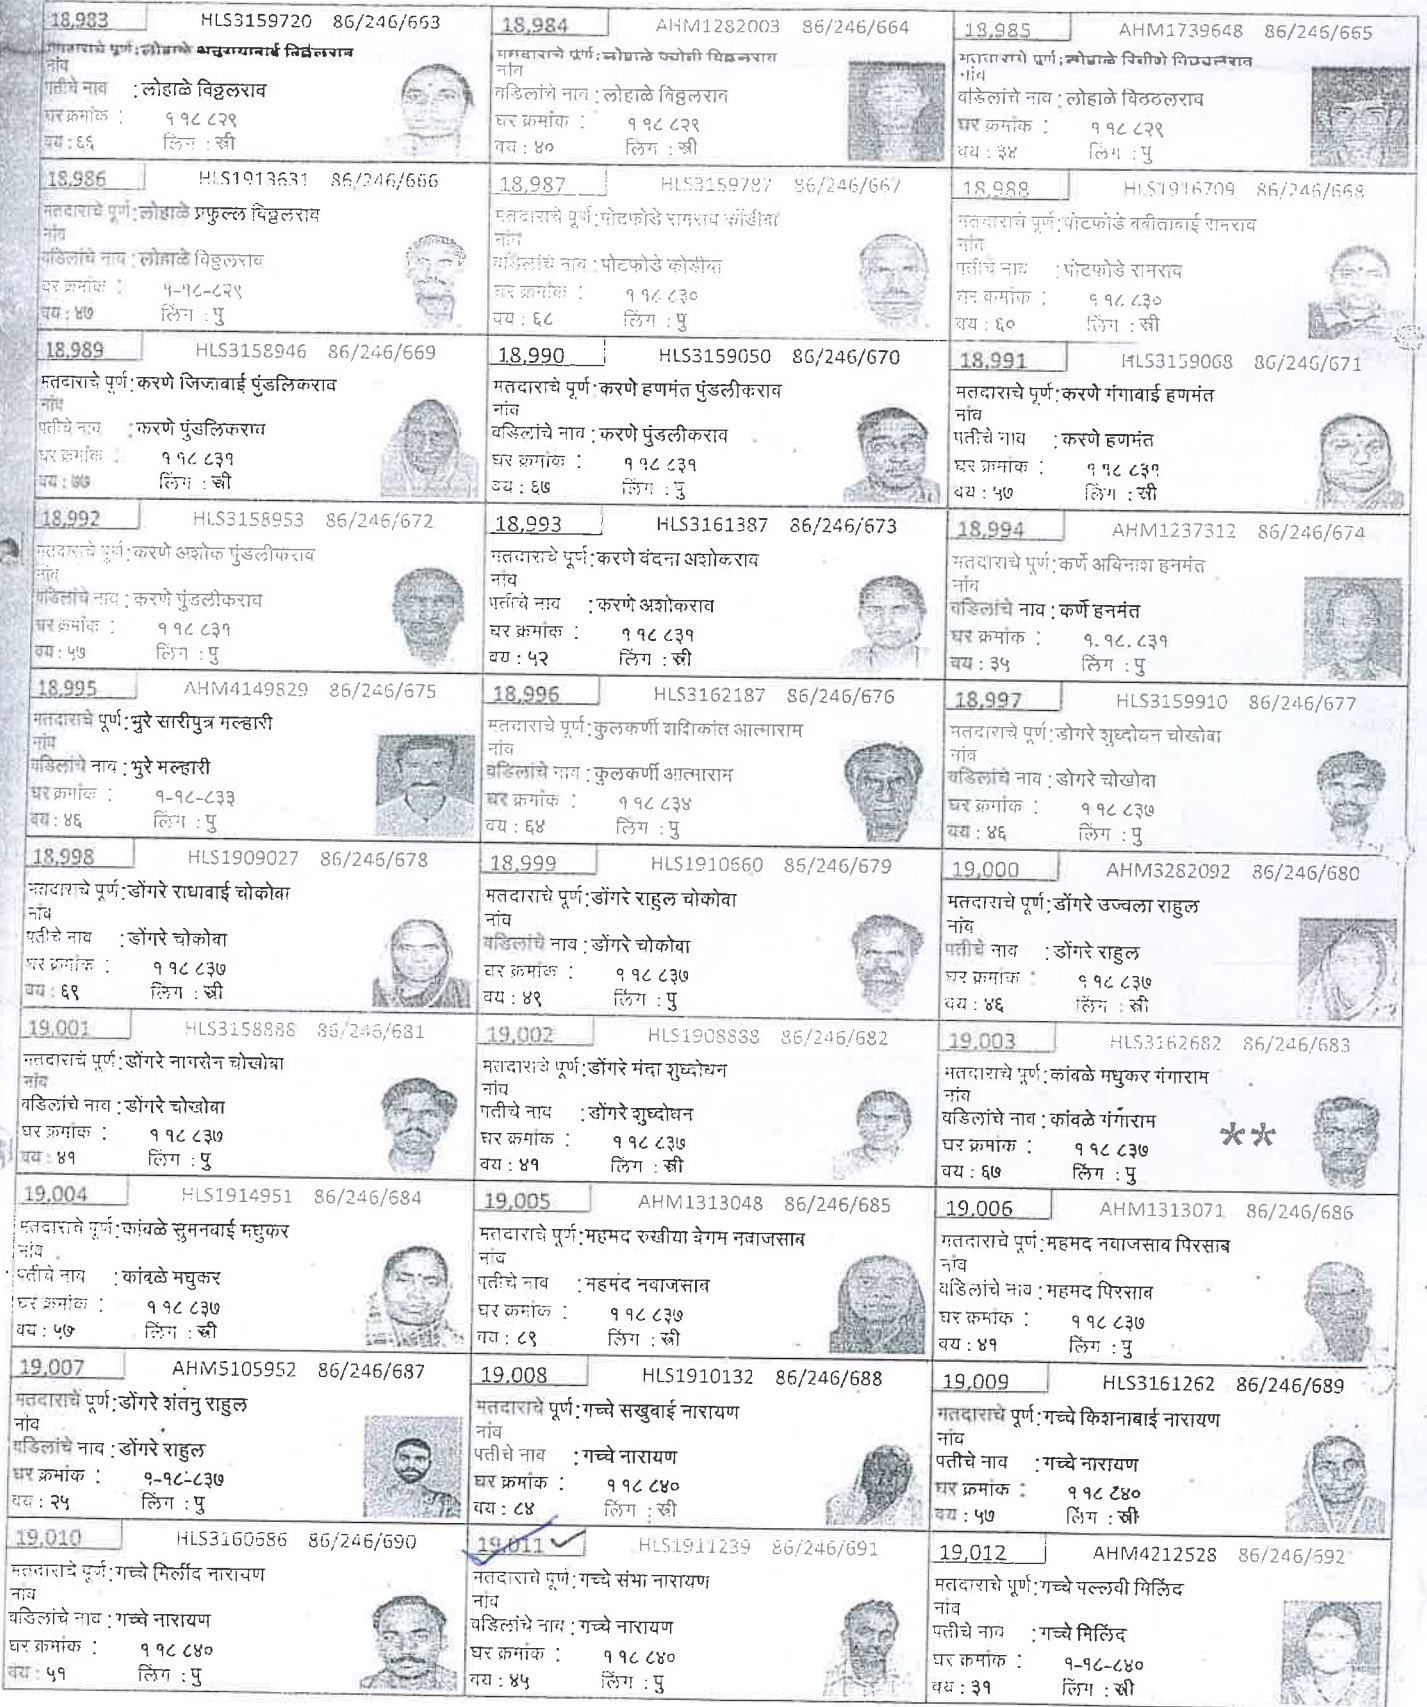 18,983 HLS3159720 86/246/663
मतदाराचे पूर्ण : लोहाळे अनुसयाबाई विठ्ठलराव
नांव
पतीचे नाव : लोहाळे विठ्ठलराव
घर क्रमांक : १ १८ ८२९
वय : ६६ लिंग : स्री
18,984 AHM1282003 86/246/664
मतदाराचे पूर्ण : लोहाळे ज्योती विठ्ठलराव
नांव
वडिलांचे नाव : लोहाळे विठ्ठलराव
घर क्रमांक : १ १८ ८२९
वय : ४० लिंग : स्री
18,985 AHM1739648 86/246/665
मतदाराचे पूर्ण : लोहाळे विठठलराव
नांव
वडिलांचे नाव : लोहाळे विठठलराव
घर क्रमांक : १ १८ ८२९
वय : ३४ लिंग : पु
18,986 HLS1913631 86/246/666
मतदाराचे पूर्ण : लोहाळे प्रफुल्ल विठ्ठलराव
नांव
वडिलांचे नाव : लोहाळे विठ्ठलराव
घर क्रमांक : १-१८-८२९
वय : ४७ लिंग : पु
18,987 HLS3159787 86/246/667
मतदाराचे पूर्ण : पोटफोडे रामराव कोंडीबा
नांव
वडिलांचे नाव : पोटफोडे कोंडीबा
घर क्रमांक : १ १८ ८३०
वय : ६८ लिंग : पु
18,988 HLS1916709 86/246/668
मतदाराचे पूर्ण : पोटफोडे बबीताबाई रामराव
नांव
पतीचे नाव : पोटफोडे रामराव
घर क्रमांक : १ १८ ८३०
वय : ६० लिंग : स्री
18,989 HLS3158946 86/246/669
मतदाराचे पूर्ण : करणे जिजाबाई पुंडलिकराव
नांव
पतीचे नाव : करणे पुंडलिकराव
घर क्रमांक : १ १८ ८३१
वय : ७७ लिंग : स्री
18,990 HLS3159050 86/246/670
मतदाराचे पूर्ण : करणे हणमंत पुंडलीकराव
नांव
वडिलांचे नाव : करणे पुंडलीकराव
घर क्रमांक : १ १८ ८३१
वय : ६७ लिंग : पु
18,991 HLS3159068 86/246/671
मतदाराचे पूर्ण : करणे गंगाबाई हणमंत
नांव
पतीचे नाव : करणे हणमंत
घर क्रमांक : १ १८ ८३१
वय : ५७ लिंग : स्री
18,992 HLS3158953 86/246/672
मतदाराचे पूर्ण : करणे अशोक पुंडलीकराव
नांव
वडिलांचे नाव : करणे पुंडलीकराव
घर क्रमांक : १ १८ ८३१
वय : ५७ लिंग : पु
18,993 HLS3161387 86/246/673
मतदाराचे पूर्ण : करणे वंदना अशोकराव
नांव
पतीचे नाव : करणे अशोकराव
घर क्रमांक : १ १८ ८३१
वय : ५२ लिंग : स्री
18,994 AHM1237312 86/246/674
मतदाराचे पूर्ण : कर्णे अविनाश हनमंत
नांव
वडिलांचे नाव : कर्णे हनमंत
घर क्रमांक : १. १८. ८३१
वय : ३५ लिंग : पु
18,995 AHM4149829 86/246/675
मतदाराचे पूर्ण : भुरे सारीपुत्र मल्हारी
नांव
वडिलांचे नाव : भुरे मल्हारी
घर क्रमांक : १-१८-८३३
वय : ४६ लिंग : पु
18,996 HLS3162187 86/246/676
मतदाराचे पूर्ण : कुलकर्णी शशिकांत आत्माराम
नांव
वडिलांचे नाव : कुलकर्णी आत्माराम
घर क्रमांक : १ १८ ८३४
वय : ६४ लिंग : पु
18,997 HLS3159910 86/246/677
मतदाराचे पूर्ण : डोगरे शुध्दोधन चोखोबा
नांव
वडिलांचे नाव : डोगरे चोखोबा
घर क्रमांक : १ १८ ८३७
वय : ४६ लिंग : पु
18,998 HLS1909027 86/246/678
मतदाराचे पूर्ण : डोंगरे राधाबाई चोकोबा
नांव
पतीचे नाव : डोंगरे चोकोबा
घर क्रमांक : १ १८ ८३७
वय : ६९ लिंग : स्री
18,999 HLS1910660 86/246/679
मतदाराचे पूर्ण : डोंगरे राहुल चोकोबा
नांव
वडिलांचे नाव : डोंगरे चोकोबा
घर क्रमांक : १ १८ ८३७
वय : ४९ लिंग : पु
19,000 AHM3282092 86/246/680
मतदाराचे पूर्ण : डोंगरे उज्वला राहुल
नांव
पतीचे नाव : डोंगरे राहुल
घर क्रमांक : १ १८ ८३७
वय : ४६ लिंग : स्री
19,001 HLS3158888 86/246/681
मतदाराचे पूर्ण : डोंगरे नागसेन चोखोबा
नांव
वडिलांचे नाव : डोंगरे चोखोबा
घर क्रमांक : १ १८ ८३७
वय : ४१ लिंग : पु
19,002 HLS1908888 86/246/682
मतदाराचे पूर्ण : डोंगरे मंदा शुध्दोधन
नांव
पतीचे नाव : डोंगरे शुध्दोधन
घर क्रमांक : १ १८ ८३७
वय : ४१ लिंग : स्री
19,003 HLS3162682 86/246/683
मतदाराचे पूर्ण : कांबळे मधुकर गंगाराम
नांव
वडिलांचे नाव : कांबळे गंगाराम
घर क्रमांक : १ १८ ८३७ **
वय : ६७ लिंग : पु
19,004 HLS1914951 86/246/684
मतदाराचे पूर्ण : कांबळे सुमनबाई मधुकर
नांव
पतीचे नाव : कांबळे मधुकर
घर क्रमांक : १ १८ ८३७
वय : ५७ लिंग : स्री
19,005 AHM1313048 86/246/685
मतदाराचे पूर्ण : महमद रुखीया बेगम नवाजसाब
नांव
पतीचे नाव : महमंद नवाजसाब
घर क्रमांक : १ १८ ८३७
वय : ८९ लिंग : स्री
19,006 AHM1313071 86/246/686
मतदाराचे पूर्ण : महमद नवाजसाब पिरसाब
नांव
वडिलांचे नाव : महमद पिरसाब
घर क्रमांक : १ १८ ८३७
वय : ४१ लिंग : पु
19,007 AHM5105952 86/246/687
मतदाराचे पूर्ण : डोंगरे शंतनु राहुल
नांव
वडिलांचे नाव : डोंगरे राहुल
घर क्रमांक : १-१८-८३७
वय : २५ लिंग : पु
19,008 HLS1910132 86/246/688
मतदाराचे पूर्ण : गच्चे सखुबाई नारायण
नांव
पतीचे नाव : गच्चे नारायण
घर क्रमांक : १ १८ ८४०
वय : ८४ लिंग : स्री
19,009 HLS3161262 86/246/689
मतदाराचे पूर्ण : गच्चे किशनाबाई नारायण
नांव
पतीचे नाव : गच्चे नारायण
घर क्रमांक : १ १८ ८४०
वय : ५७ लिंग : स्री
19,010 HLS3160686 86/246/690
मतदाराचे पूर्ण : गच्चे मिलींद नारायण
नांव
वडिलांचे नाव : गच्चे नारायण
घर क्रमांक : १ १८ ८४०
वय : ५१ लिंग : पु
19,011 HLS1911239 86/246/691
मतदाराचे पूर्ण : गच्चे संभा नारायण
नांव
वडिलांचे नाव : गच्चे नारायण
घर क्रमांक : १ १८ ८४०
वय : ४५ लिंग : पु
19,012 AHM4212528 86/246/692
मतदाराचे पूर्ण : गच्चे पल्लवी मिलिंद
नांव
पतीचे नाव : गच्चे मिलिंद
घर क्रमांक : १-१८-८४०
वय : ३१ लिंग : स्री